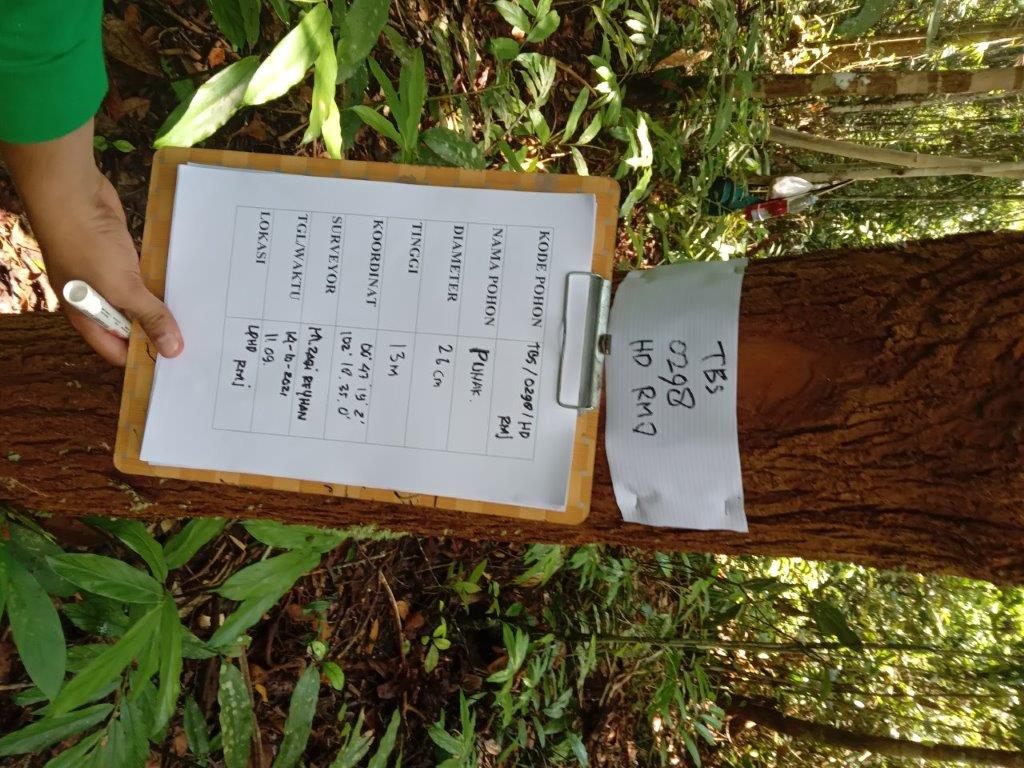 TBS
0298
HD RMJ
KODE POHON TBS/0298/HD
RMJ
NAMA POHON PUNAK.
DIAMETER 26 cm
TINGGI 13 M
KOORDINAT 00° 47' 19' 2'
102° 18. 35. 0'
SURVEYOR M. ZAGI REYHAN
TGL/WAKTU 14-10-2021
11 09.
LOKASI LPHD
RMJ